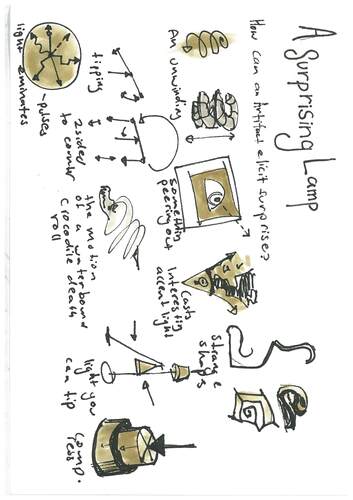 A Surprising Lamp
How can an Artifact elicit surprise?
An unwinding
something
peering out
Casts
Interesting
accent light
strange
shape
tipping
2 sided
to counter
the motion
of a waterbound
crocodile death
roll
light you
can tip
comp.
ress
pulses
light eminates